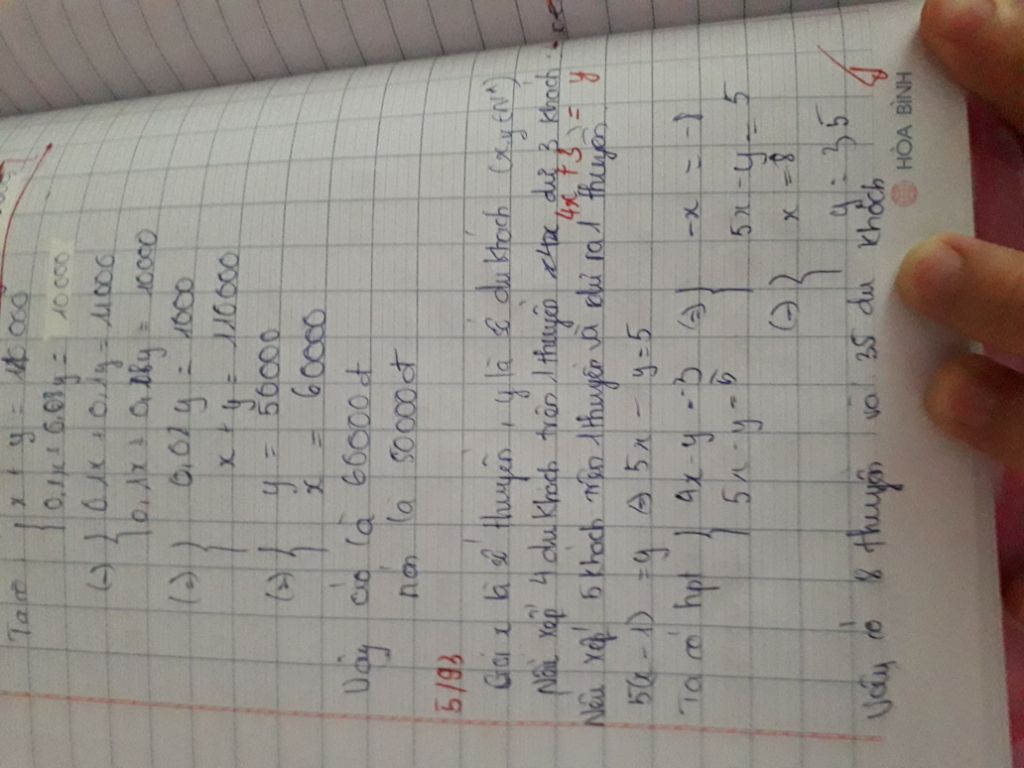 Ta có { x + y = 110000
{ 0,1x + 0,08y = 10000
(=) { 0,1x + 0,1y = 11000
{ 0,1x + 0,08y = 10000
(=) { 0,02y = 1000
{ x + y = 110000
(=) { y = 50000
{ x = 60000
Vậy áo là 60000đ
nón là 50000đ
5/93
Gọi x là số thuyền, y là số du khách (x,y ∈ N*)
Nếu xếp 4 du khách trên 1 thuyền 4x dư 3 khách.
4x + 3 = y
Nếu xếp 5 khách trên 1 thuyền là dư ra 1 thuyền
5(x - 1) = y (=) 5x - y = 5
Ta có hpt { 4x - y = -3 (=) { -x = -8
{ 5x - y = 5 { 5x - y = 5
(=) { x = 8
{ y = 35
Vậy có 8 thuyền và 35 du khách
HÒA BÌNH